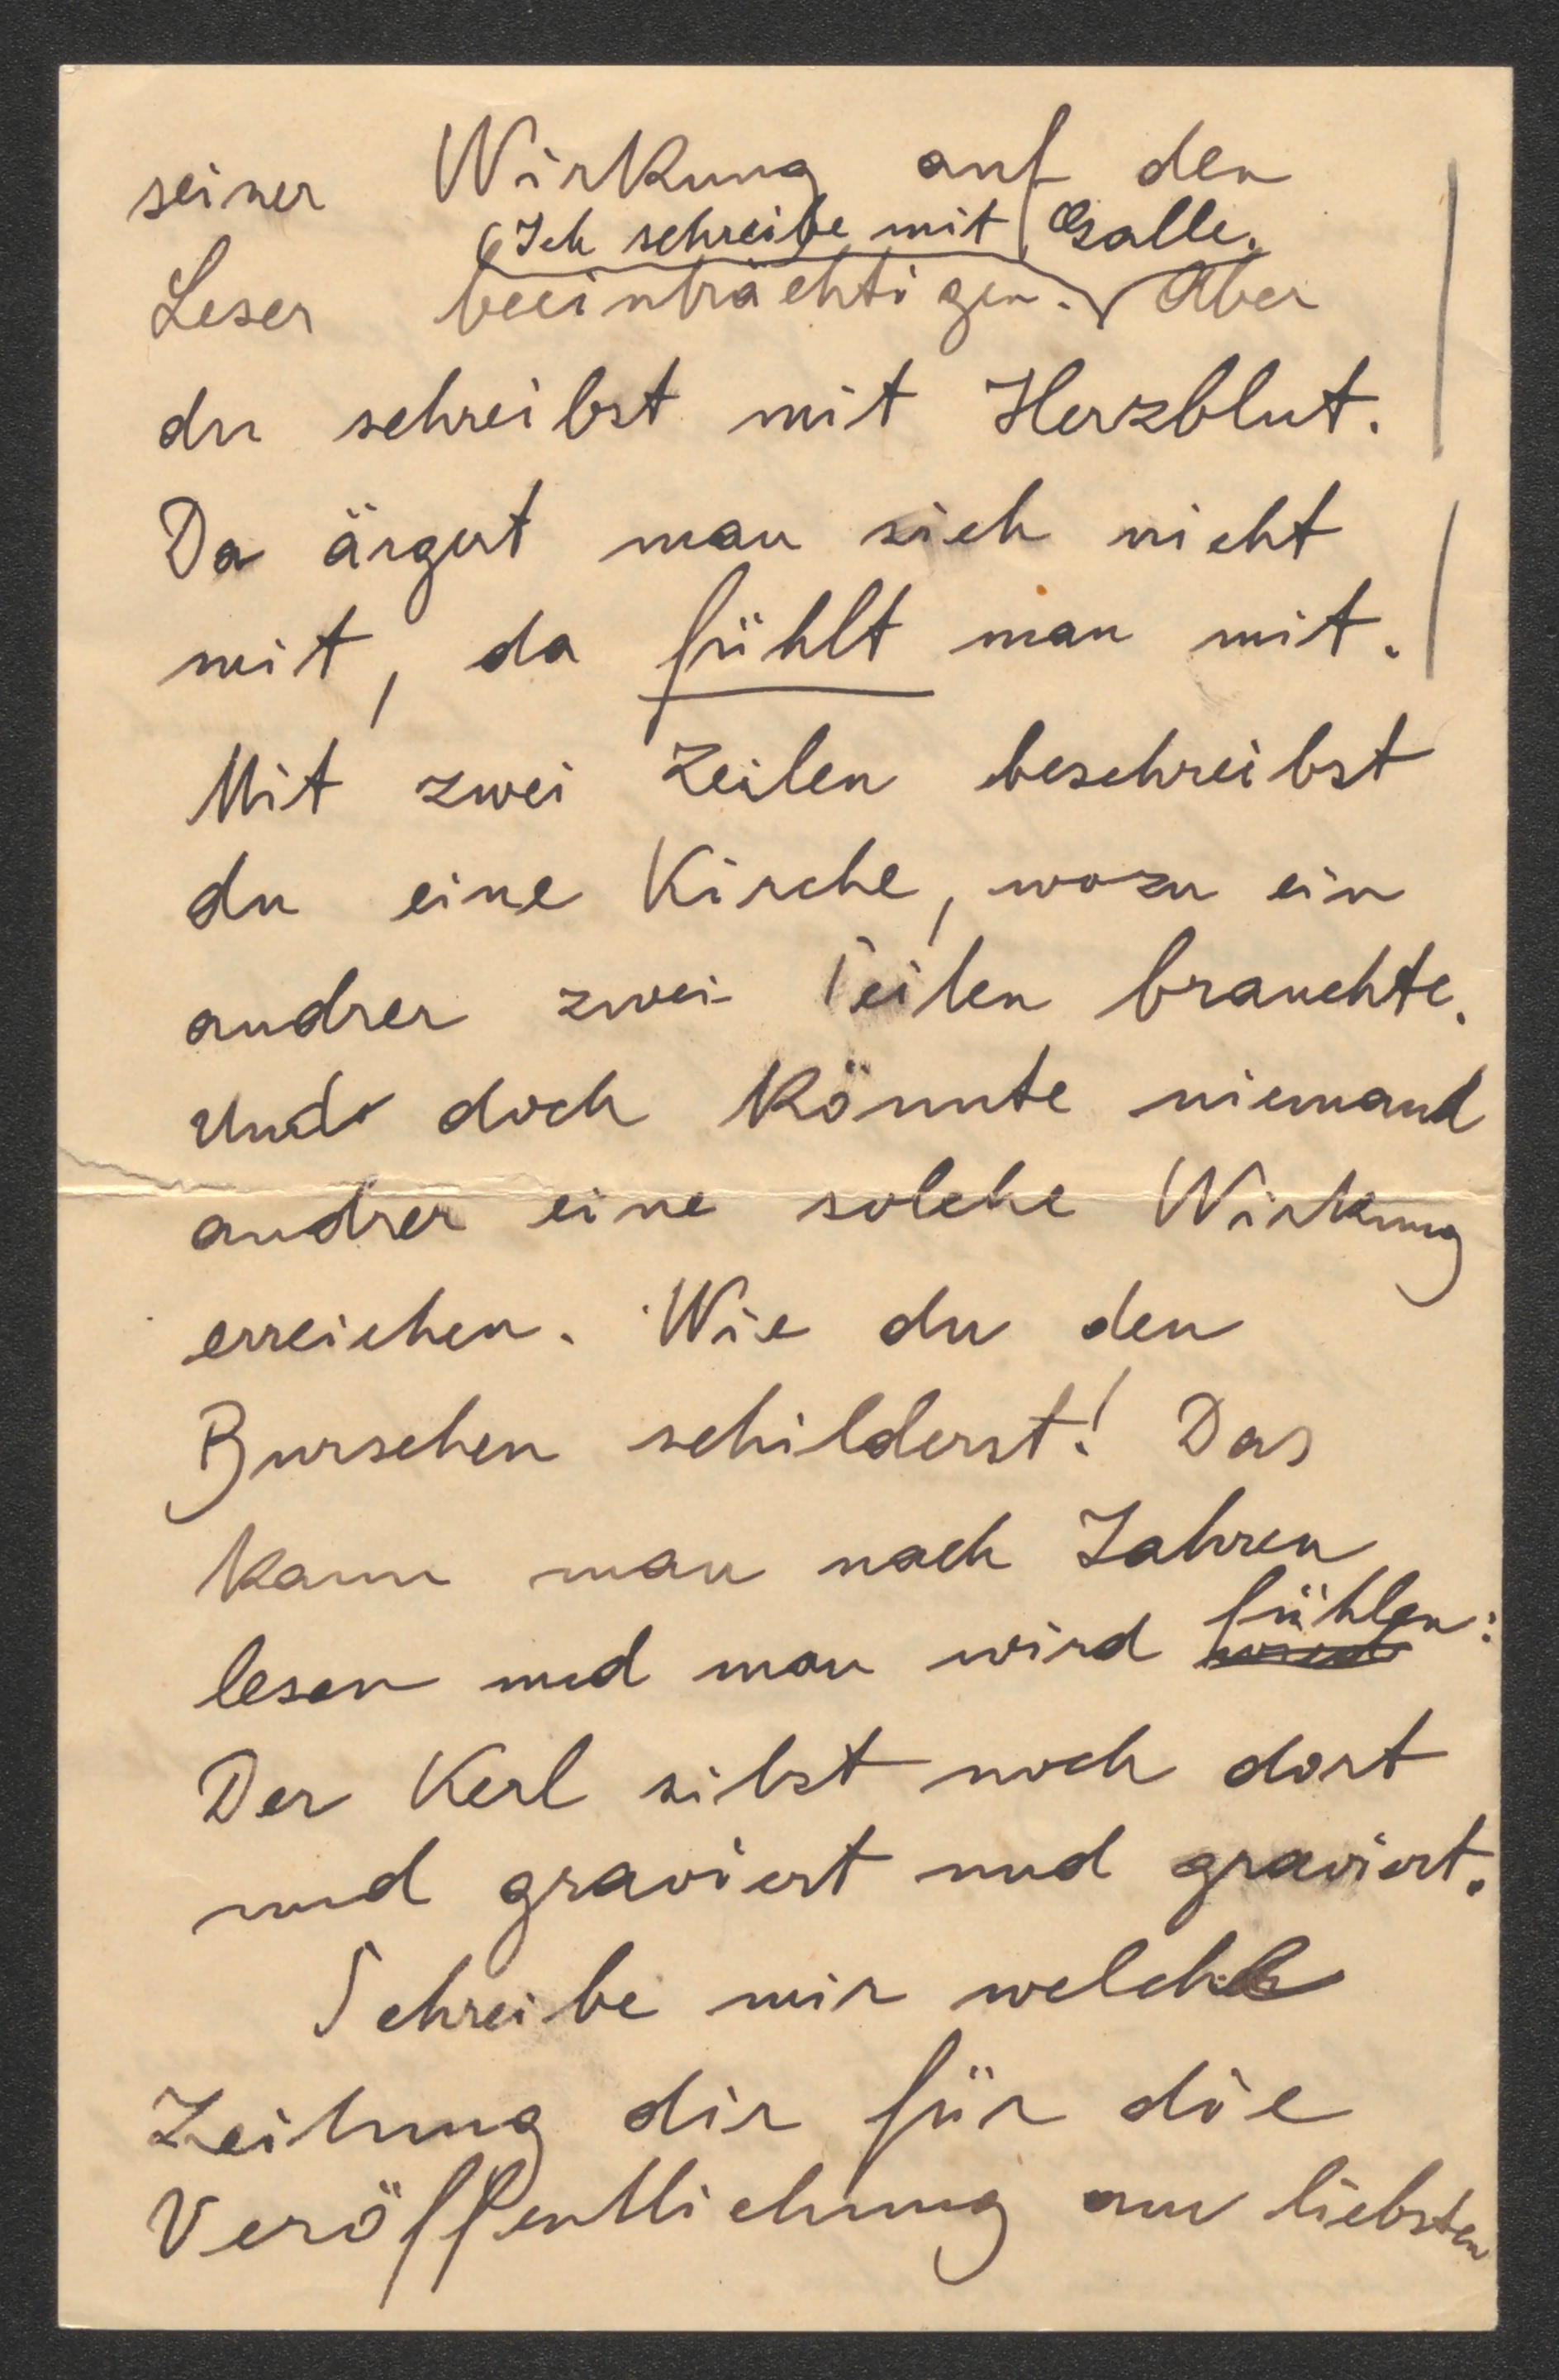 seiner Wirkung auf den
(Ich schreibe mit Galle.
Leser beeinträchtigen. Aber
du schreibst mit Herzblut.
Da ärgert man sich nicht
mit, da fühlt man mit.
Mit zwei Zeilen beschreibst
du eine Kirche, wozu ein
andrer zwei Seiten brauchte.
Und doch könnte niemand
andrer eine solche Wirkung
erreichen. Wie du den
Burschen schilderst! Das
kann man nach Jahren
lesen und man wird fühlen:
Der Kerl sitzt noch dort
und graviert und graviert.
Schreibe mir welche
Zeitung dir für die
Veröffentlichung am liebsten